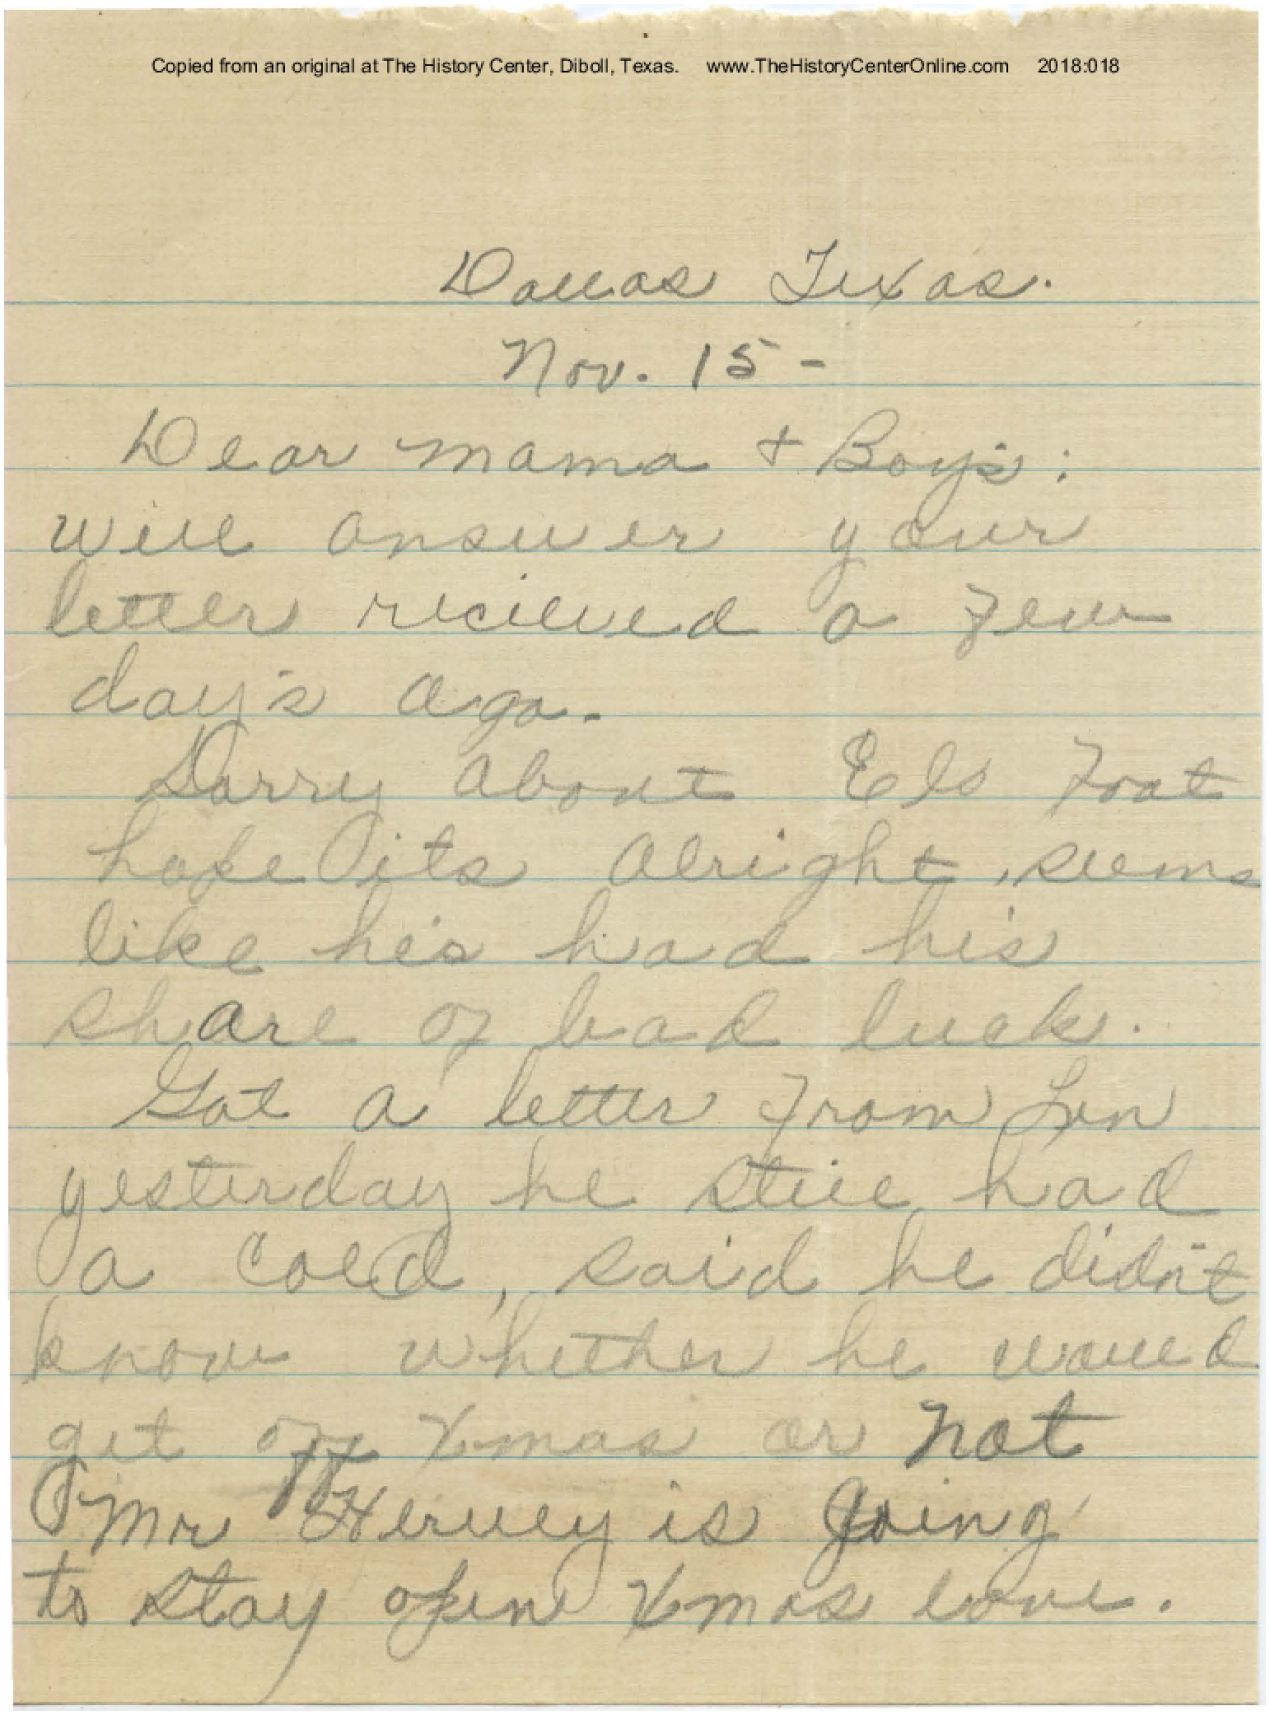 Copied from an original at The History Center, Diboll, Texas. www.TheHistoryCenterOnline.com 2018:018
Dallas Texas.
Nov. 15 -
Dear Mama + Boy's:
will answer your
letter recieved a few
day's ago.
Sorry about Els foot
hope its alright, seems
like he's had his
share of bad luck.
Got a letter from Lon
yesterday he still had
a cold, said he didn't
know whether he would
get off Xmas or not
Mr Hervey is going
to stay open Xmas eve.